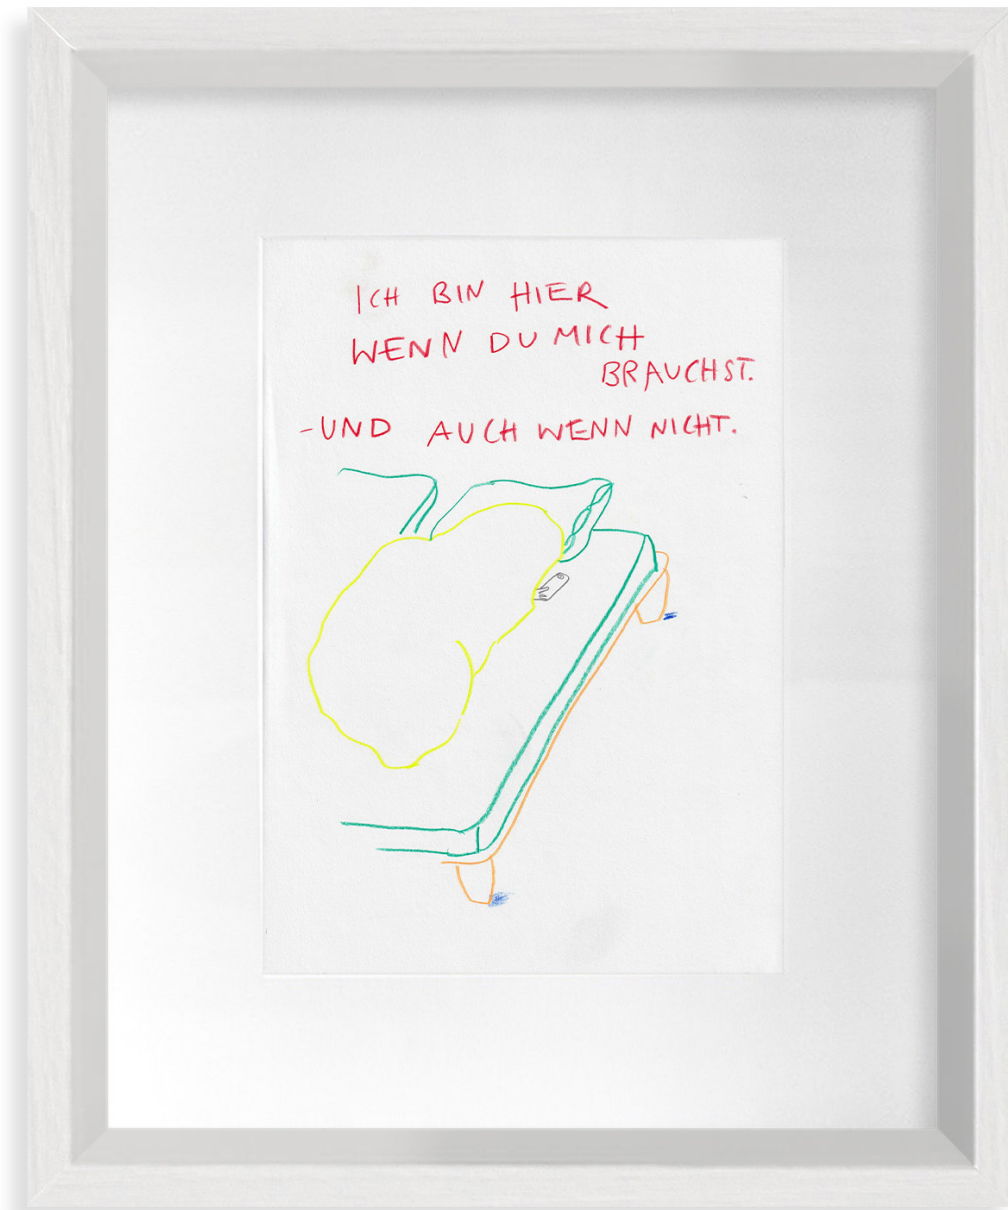 ICH BIN HIER
WENN DU MICH
BRAUCHST.
-UND AUCH WENN NICHT.